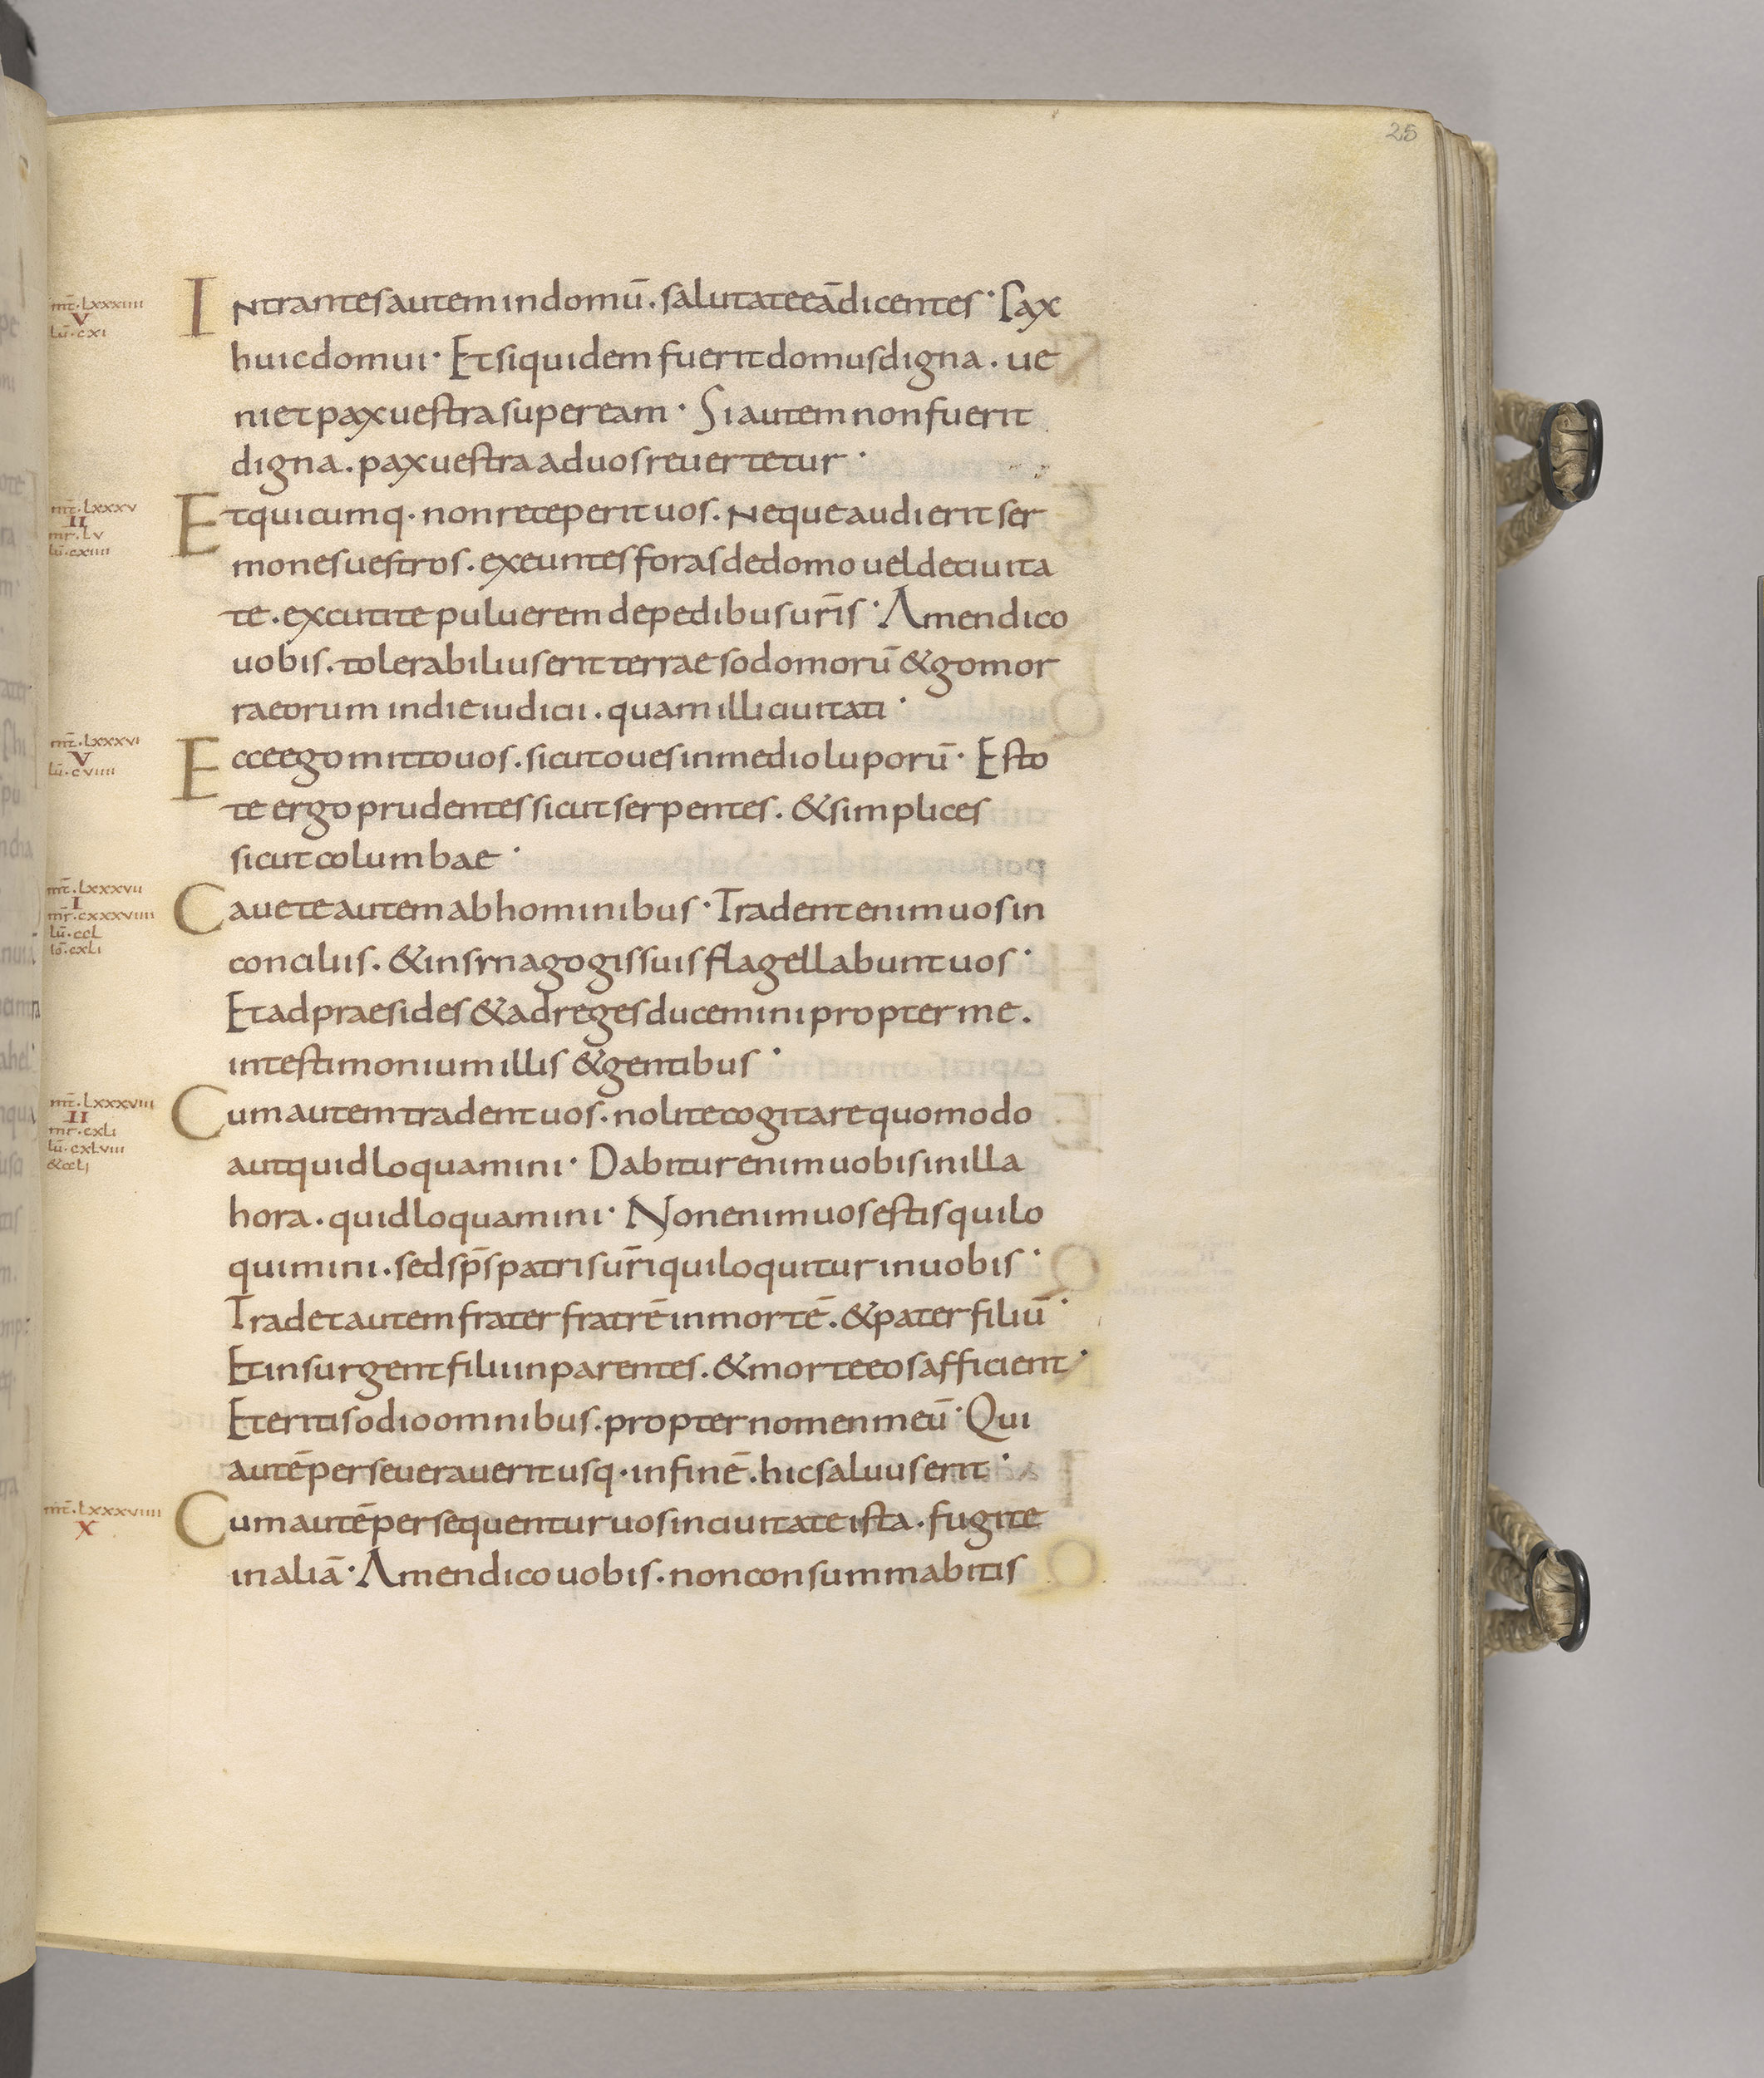 25
mt̄. Lxxxiiii
V
lū. cxi
Intrantesautemindomū. salutateeādicentes· Pax
huicdomui· Etsiquidemfueritdomusdigna. ue
nietpaxuestrasupeream· Siautemnonfuerit
digna. paxuestraaduosreuertetur·
mt̄. Lxxxv
II
mr. Lv
lū. cxiiii
Etquicumq· nonreceperituos. Nequeaudieritser
monesuestros. exeuntesforasdedomoueldeciuita
te. excutitepulueremdepedibusur̄is· Amendico
uobis. tolerabiliuseritterraesodomorū &gomor
raeorumindieiudicii. quamilliciuitati·
mt̄. Lxxxvi
V
lū. cviiii
Ecceegomittouos. sicutouesinmedioluporū· Esto
teergoprudentessicutserpentes. &simplices
sicutcolumbae·
mt̄. Lxxxvii
I
mr̄. cxxxviiii
lū. ccL
io̅. cxLi
Caueteautemabhominibus· Tradentenimuosin
conciliis. &insynagogissuisflagellabuntuos·
Etadpraesides&adregesduceminipropterme.
intestimoniumillis&gentibus·
mt̄. Lxxxviii
II
mr. cxLi
lū. cxLviii
&ccLi
Cumautemtradentuos. nolitecogitarequomodo
autquidloquamini· Dabiturenimuobisinilla
hora. quidloquamini· Nonenimuosestisquilo
quimini. sedsp̄spatrisur̄iquiloquiturinuobis·
Tradetautemfraterfratrēinmortē. &paterfiliū·
Etinsurgentfiliiinparentes. &morteeosafficient·
Eteritisodioomnibus. propternomenmeū· Qui
autēperseuerauerítusq· infinē. hicsaluuserit·
mt̄. Lxxxviiii
X
Cumautēpersequenturuosinciuitateista. fugite
inaliā· Amendicouobis. nonconsummabitis